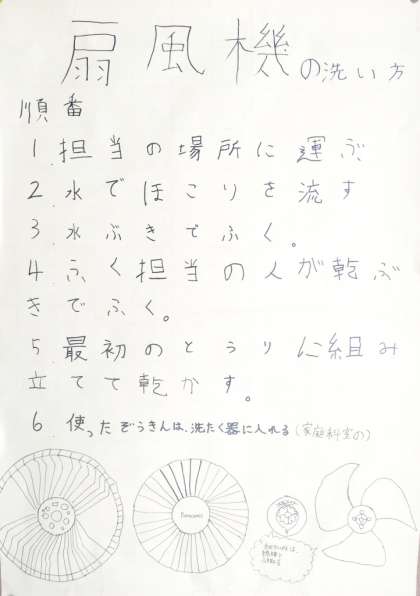 扇風機の洗い方
順番
1.担当の場所に運ぶ
2.水でほこりを流す
3.水ぶきでふく。
4.ふく担当の人が乾ぶ
きでふく。
5.最初のとうりに組み
立てて乾かす。
6.使ったぞうきんは、洗たく器に入れる(家庭科室の)
Panasonic